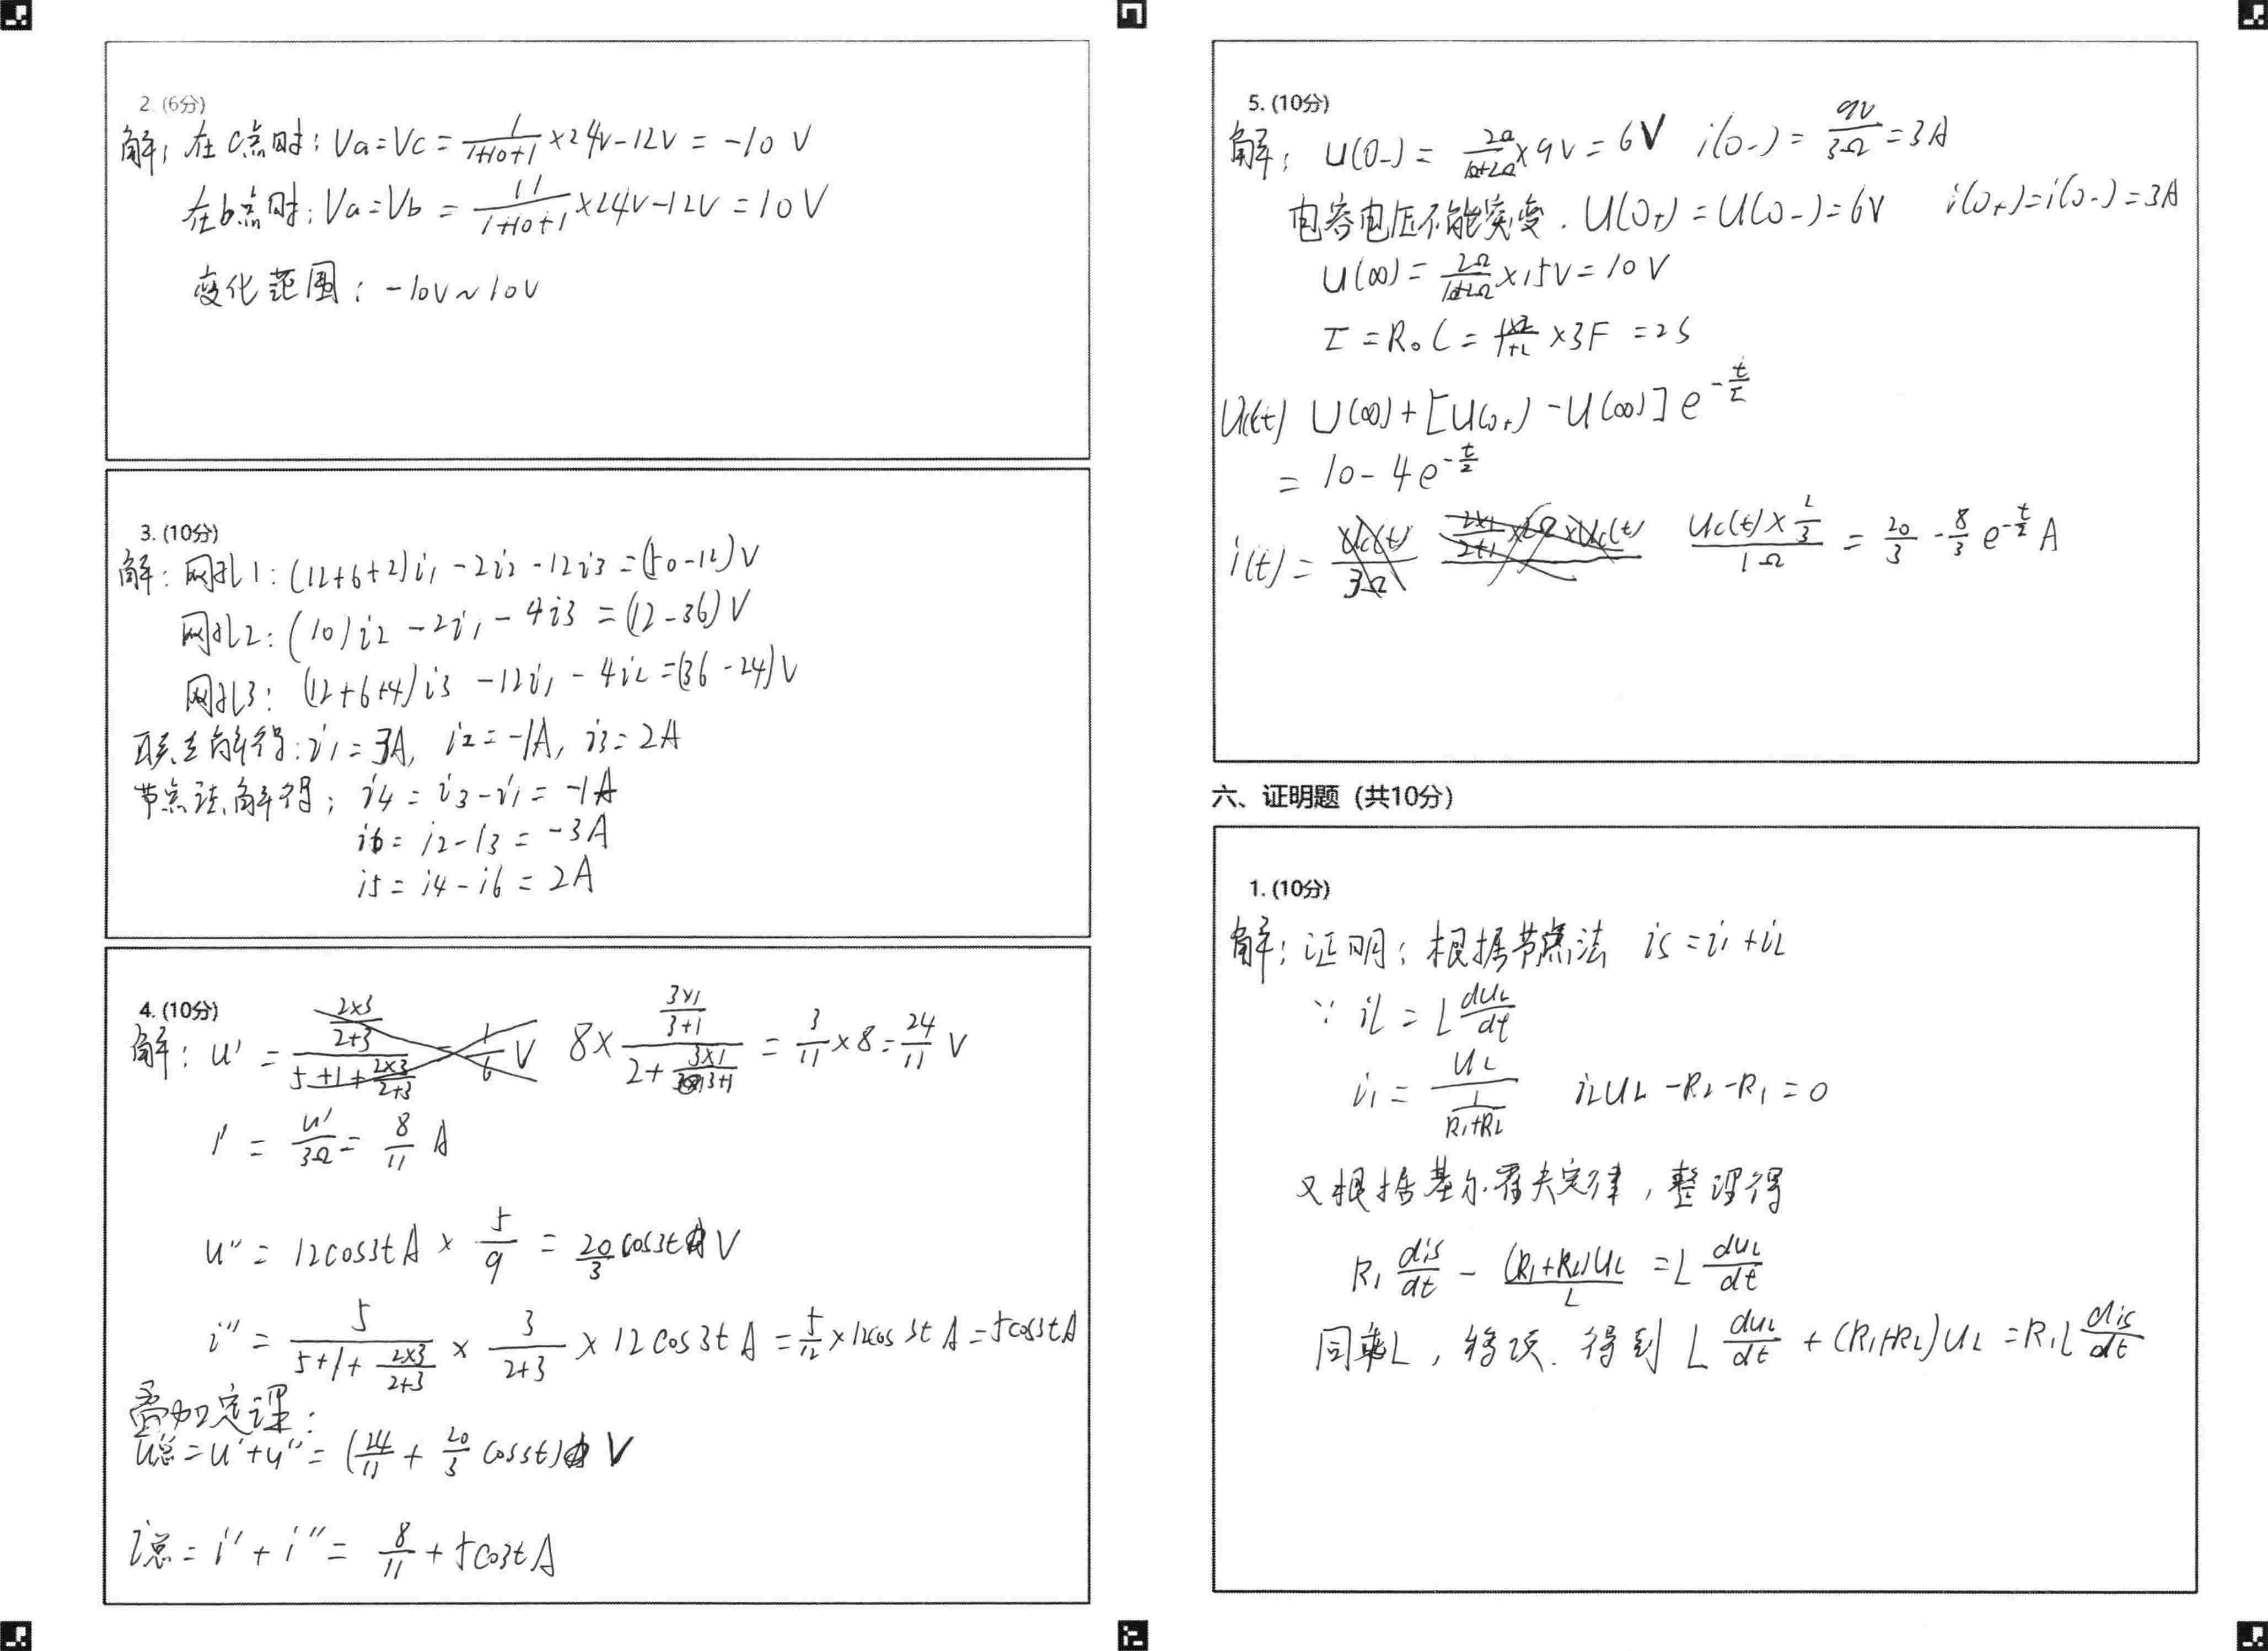 2. (6分)
解: 在c点时: Va=Vc = 1/(1+10+1) ×24V-12V = -10 V
在b点时: Va=Vb = 11/(1+10+1) ×24V-12V = 10V
变化范围: -10V~10V
3. (10分)
解: 网孔1: (12+6+2)i1 -2i2 -12i3 =(50-12)V
网孔2: (10)i2 -2i1 -4i3 =(12-36)V
网孔3: (12+6+4)i3 -12i1 -4i2 =(36-24)V
联立解得: i1=3A, i2=-1A, i3=2A
节点法解得: i4 = i3-i1 = -1A
i6 = i2-i3 = -3A
i5 = i4-i6 = 2A
4. (10分)
解: u' = 8× (3×1/(3+1))/(2+ 3×1/(3+1)) = 3/11 ×8 = 24/11 V
i' = u'/3Ω = 8/11 A
u'' = 12cos3t A × 5/9 = 20/3 cos3t V
i'' = 5/(5+1+ 2×3/(2+3)) × 3/(2+3) × 12 cos 3t A = 5/12 ×12cos 3t A = 5cos3tA
叠加定理:
u总=u'+u'' = (24/11 + 20/3 cos3t) V
i总= i' + i'' = 8/11 + 5cos3t A
5. (10分)
解: U(0-) = 2Ω/(1Ω+2Ω) ×9V = 6V i(0-) = 9V/3Ω = 3A
电容电压不能突变. U(0+) = U(0-) = 6V i(0+)=i(0-)=3A
U(∞) = 2Ω/(1Ω+2Ω) ×15V = 10V
τ = R0C = 1×2/(1+2) ×3F = 2S
Uc(t) U(∞)+[U(0+) -U(∞)] e^(-t/τ)
= 10-4e^(-t/2)
i(t) = (Uc(t)× 2/3)/1Ω = 20/3 - 8/3 e^(-t/2) A
六、证明题 (共10分)
1. (10分)
解: 证明: 根据节点法 is = i1 +iL
∵ iL = L duL/dt
i1 = UL/(1/(R1+R2)) iLUL -R2-R1 = 0
又根据基尔霍夫定律, 整理得
R1 dis/dt - (R1+R2)UL/L = L duL/dt
同乘L, 移项. 得到 L duL/dt + (R1+R2)UL = R1L dis/dt